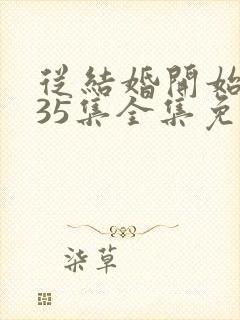 從結婚開始
35集全集免
柒草